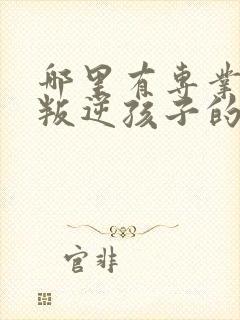 哪里有专业
叛逆孩子的
官非